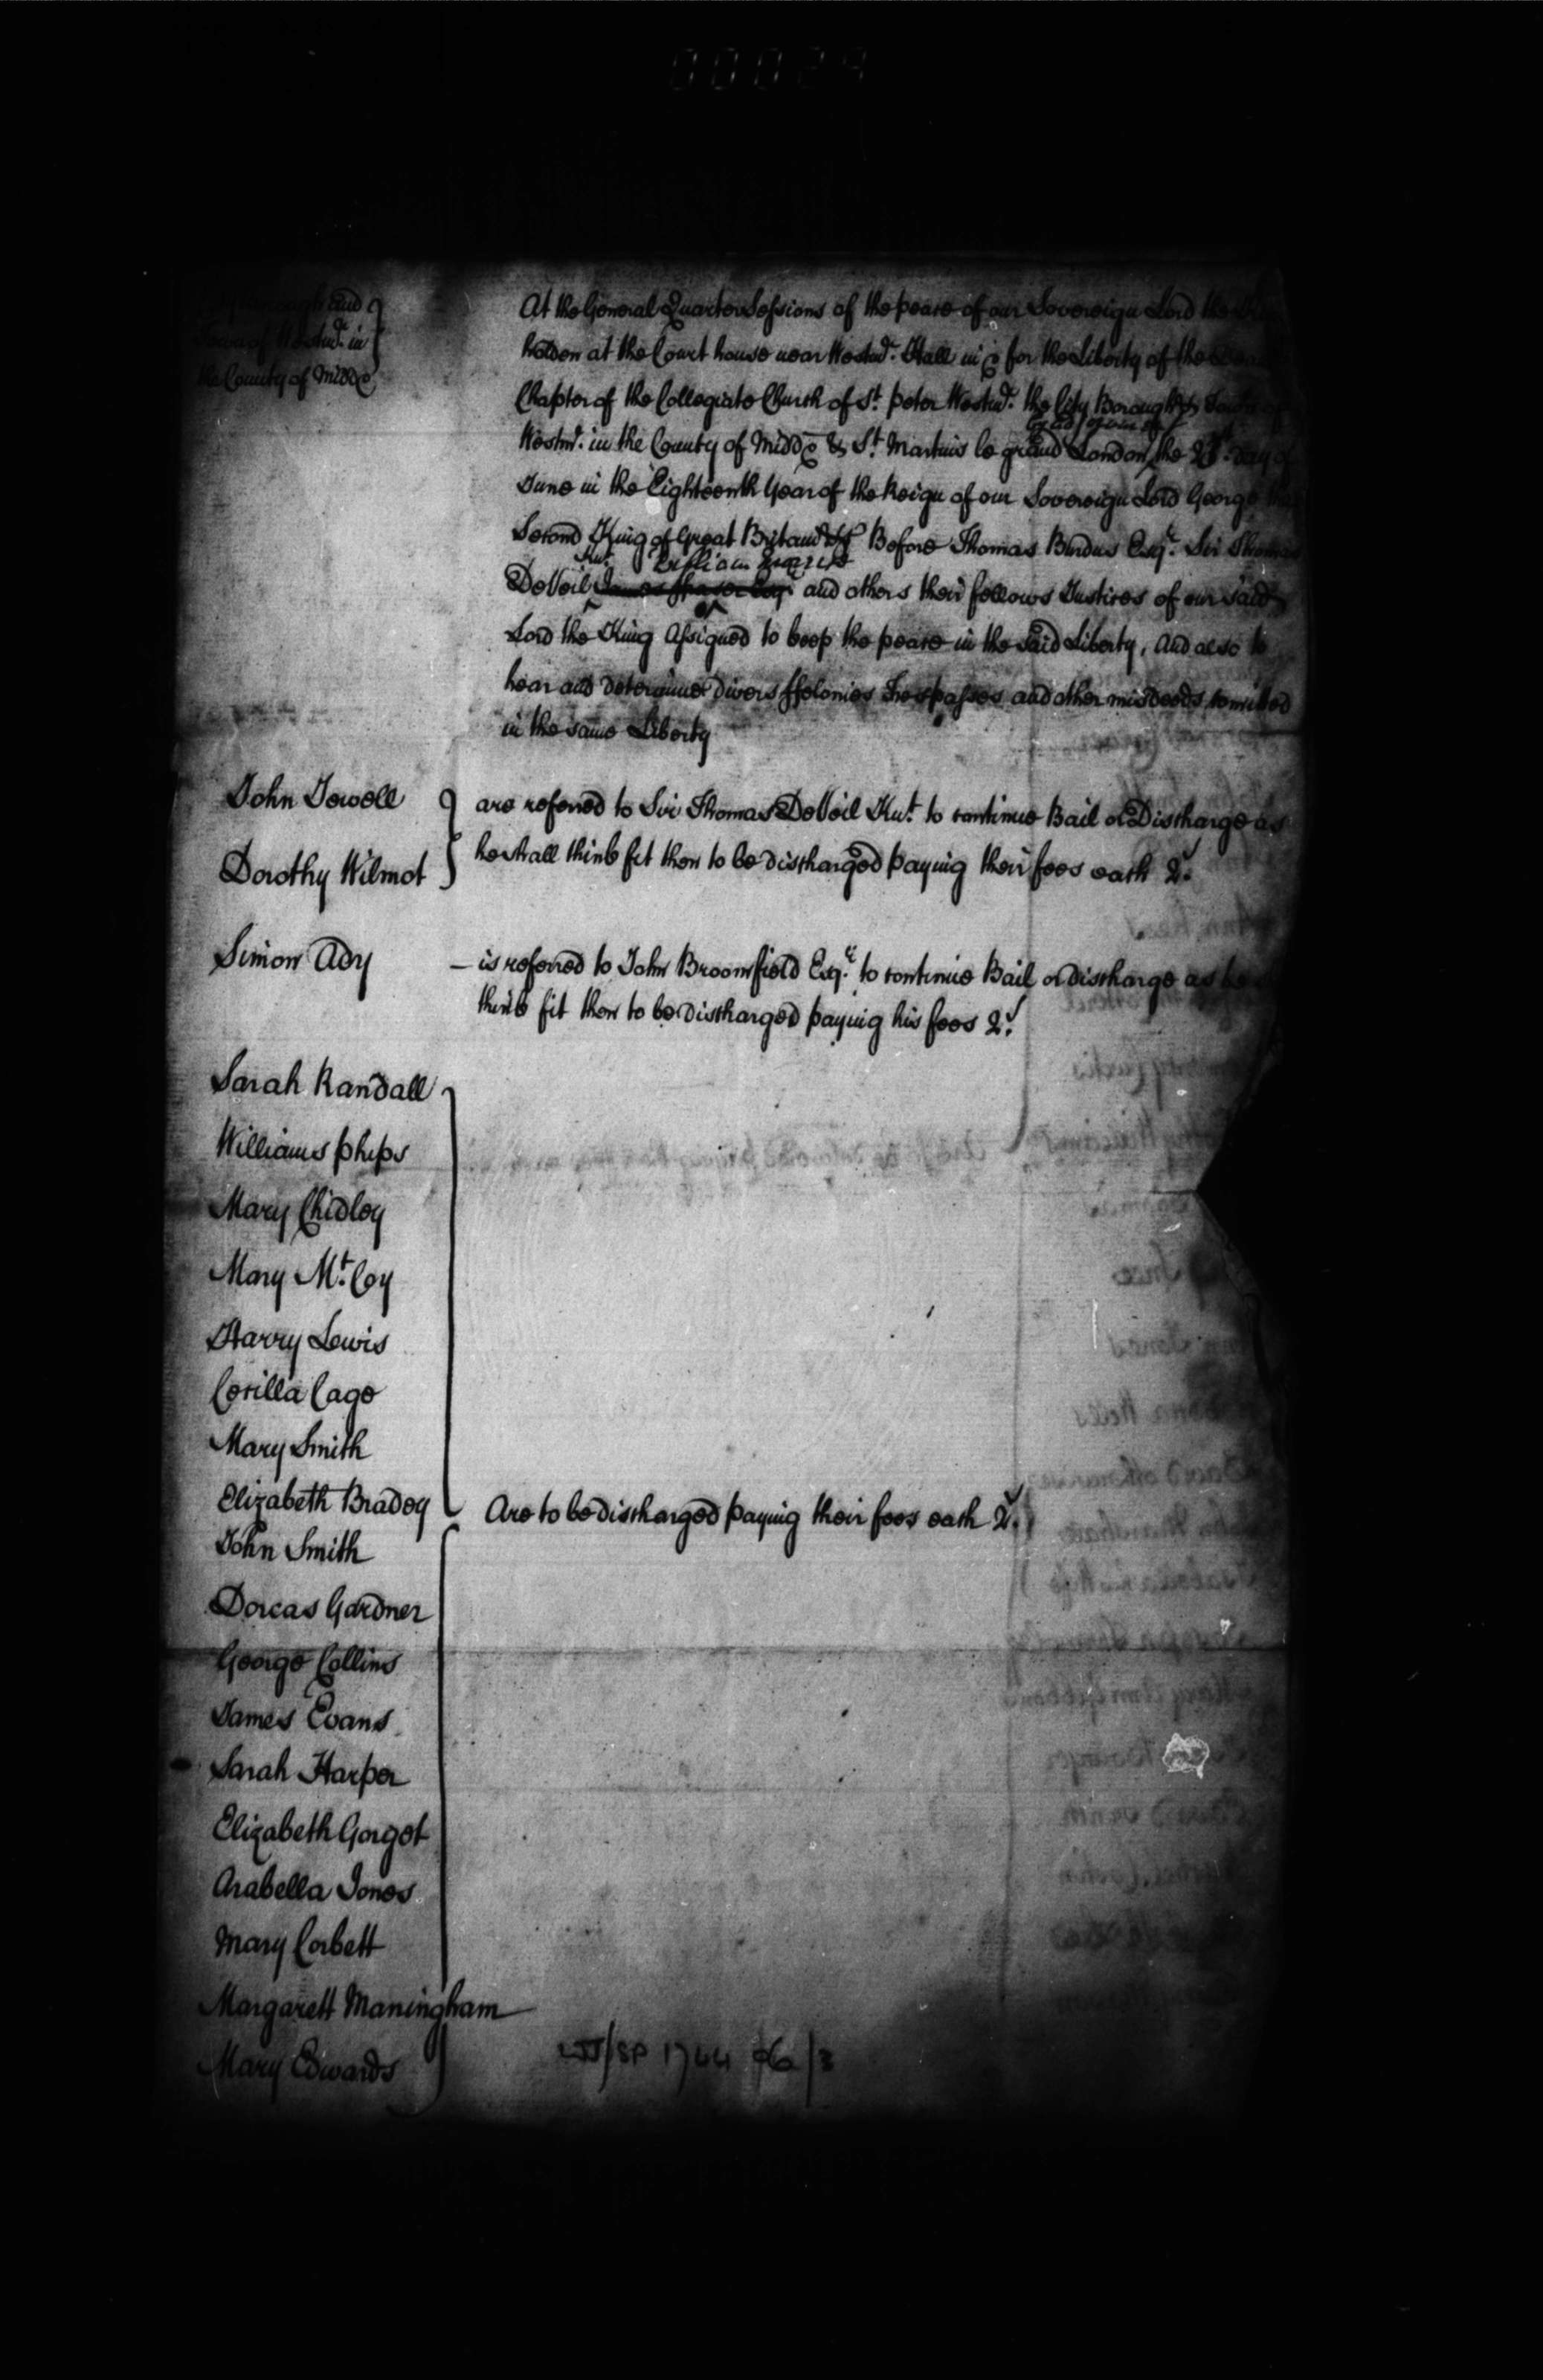 00029
Borough and
Town of Westmr. in
the County of Middx
At the General Quarter Sessions of the peace of our Sovereign Lord the
holden at the Court house near Westmr. Hall in & for the Liberty of the Dean
Chapter of the Collegiate Church of St. peter Westmr. the City Borough & Town of
Westmr. in the County of Middx & St. Martins le grand London the day of
June in the Eighteenth Year of the Reign of our Sovereign Lord George the
Second King of Great Britain &c Before Thomas Burdus Esqr. Sir Thomas
Knt. William
DeVeil James Fraser Esqr. and others their fellows Justices of our said
Lord the King Assigned to keep the peace in the said Liberty, And also to
hear and determine divers ffelonies Trespasses and other misdeeds comitted
in the same Liberty
John Jewell
Dorothy Wilmot
are referred to Sir Thomas DeVeil Knt. to continue Bail or Discharge as
he shall think fit then to be discharged paying their fees each 2s.
Simon Ady
– is referred to John Broomfield Esqr. to continue Bail or discharge as he
think fit then to be discharged paying his fees 2s.
Sarah Randall
Williams phips
Mary Chidley
Mary Mc.Coy
Harry Lewis
Cecilla Cage
Mary Smith
Elizabeth Bradey
Are to be discharged paying their fees each 2s.
John Smith
Dorcas Gardner
George Collins
James Evans
Sarah Harper
Elizabeth Gorget
Arabella Jones
Mary Corbett
Margarett Maningham
Mary Edwards
WJ/SP 1744 06/3